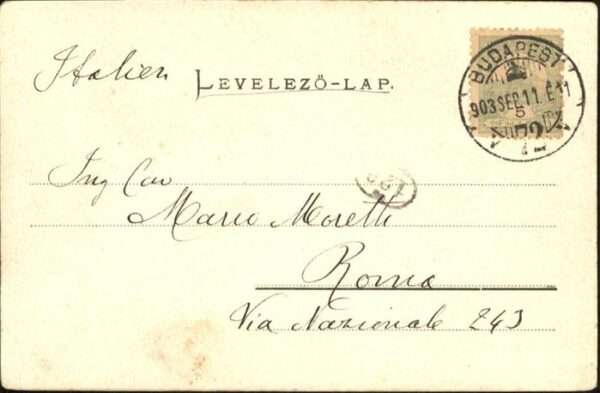 Italien
LEVELEZŐ-LAP.
BUDAPEST
903 SEP. 11. É 11
5
72
Ing Cav
Mario Moretti
Roma
Via Nazionale 243